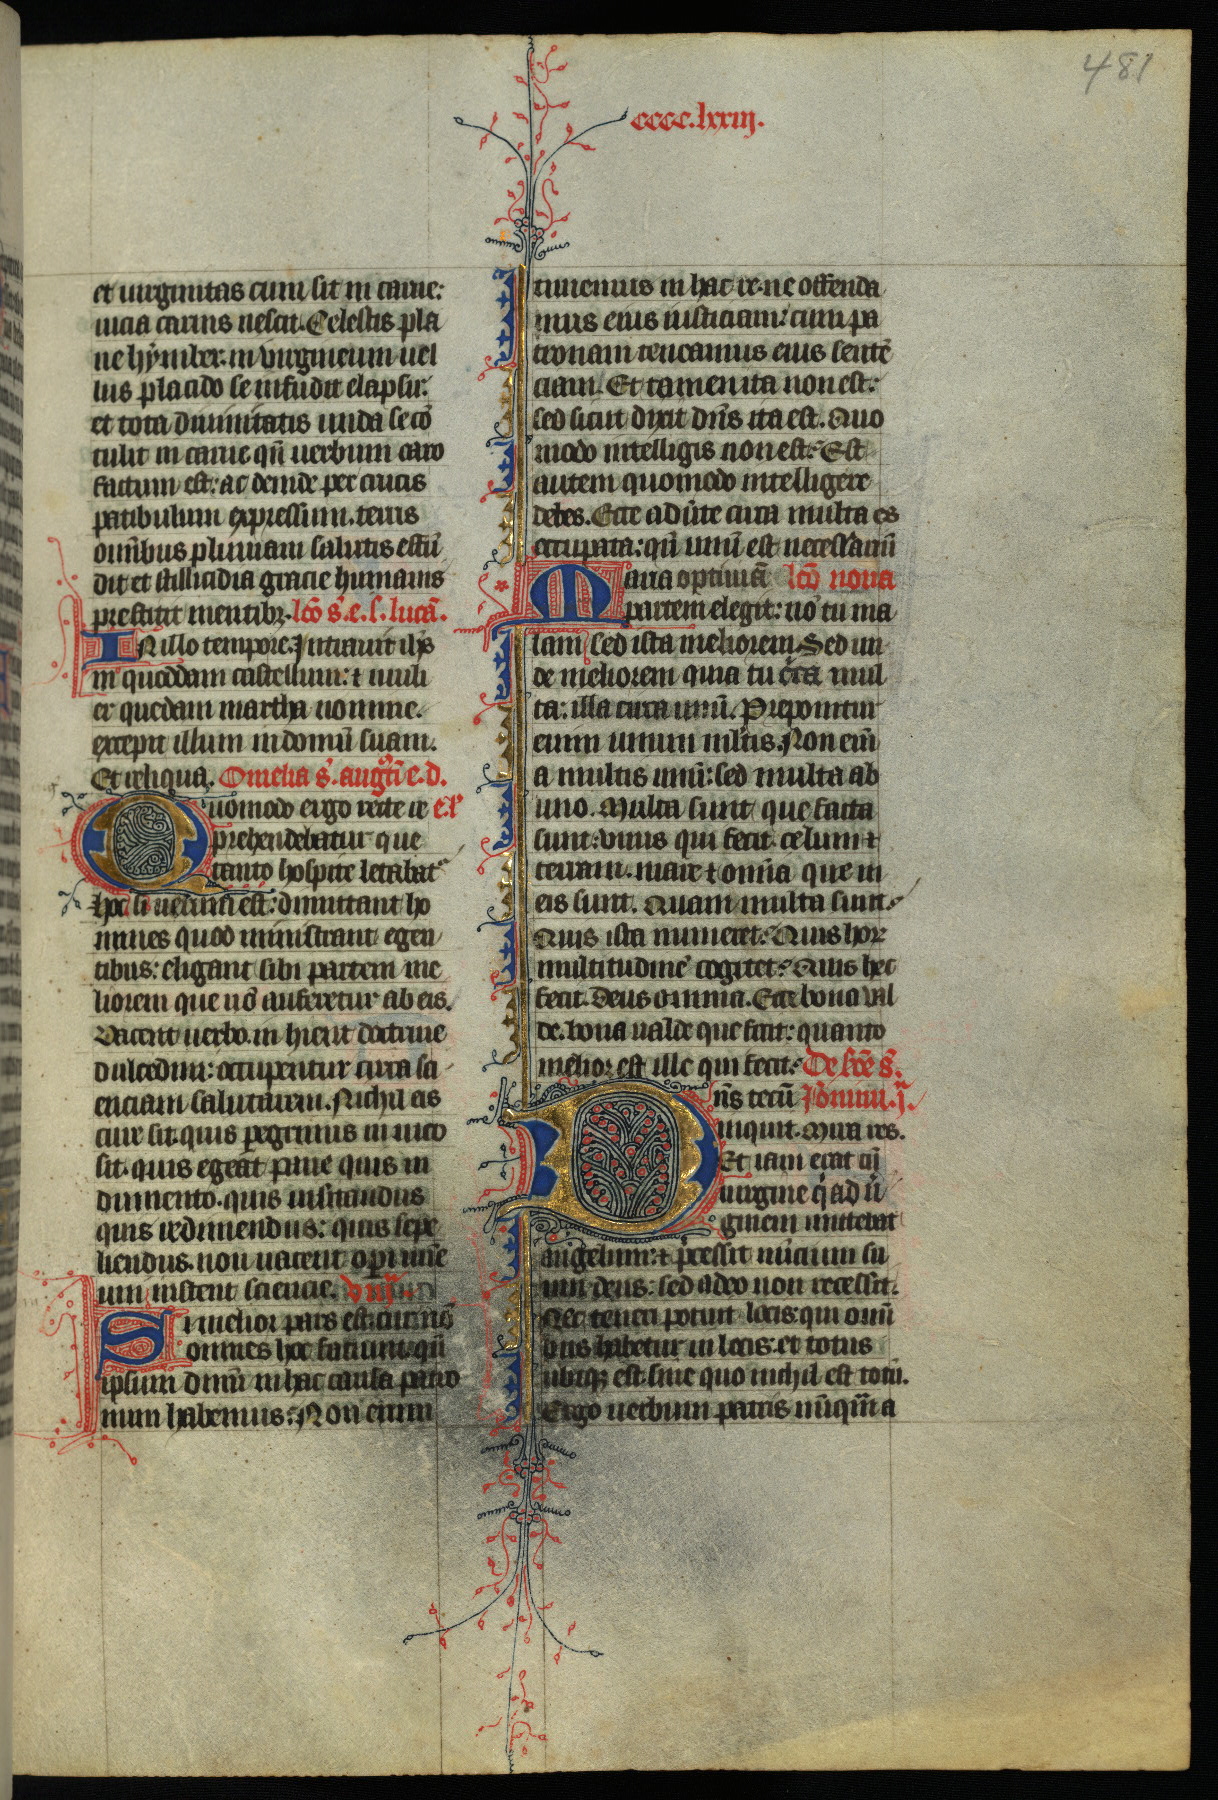 481
cccc.lxxiij.
et uirginitas cum sit in carne:
uicia carnis nescit. Celestis pla
ne hymber. in virgineum uel
lus placido se infudit elapsu:
et tota diuinitatis unda se co̅
tulit in carne qn̅ uerbum caro
factum est: ac deinde per crucis
patibulum expressum. terris
omnibus pluuiam salutis effu̅
dit et stillicidia gracie humanis
prestitit mentibꝫ. lco̅ s̅. e. s. luca̅.
IN illo tempore. Intrauit ih̅s
in quoddam castellum: ⁊ muli
er quedam martha nomine.
excepit illum in domu̅ suam.
Et reliqua. Omelia s̅. augꝰti̅ e. d.
Quomodo ergo recte re e.l'
prehendebatur que
tanto hospite letabat᷑
hoc si uerum est: dimittant ho
mines quod ministrant egen
tibus: eligant sibi partem me
liorem que no̅ auferetur ab eis.
Vacent uerbo. in hient doctrine
dulcedini: occupentur circa sci
enciam salutarem. Nichil eis
cure sit. quis peregrinus in uico
sit. quis egeat pane quis in
dumento. quis uisitandus
quis redimendus: quis sepe
liendus. non uacent operi une̅
um instent sciencie. viij.
Si melior pars est: cur no̅
omnes hoc faciunt. qn̅
ipsum dn̅m in hac causa patro
num habemus: Non enim
timemus in hac re. ne offenda
mus eius iusticiam: cum pa
tronam teneamus eius sente̅
ciam. Et tamen ita non est:
sed sicut dixit dn̅s ita est. Quo
modo intelligis non est: Est
autem quomodo intelligere
debes. Ecce aduerte circa multa es
occupata: qn̅ unu̅ est necessariu̅
Maria optima̅ lco̅ nona
partem elegit: no̅ tu ma
lam sed ista meliorem. Sed un
de meliorem quia tu circa mul
ta: illa circa unu̅. Preponitur
enim unum multis. Non eni̅
a multis unu̅: sed multa ab
uno. Multa sunt que facta
sunt: unus qui fecit. celum ⁊
terram. mare ⁊ omnia que in
eis sunt. Quam multa sunt.
Quis ista numeret: Quis hor̅
multitudine̅ cogitet: Quis hec
fecit. deus omnia. Ecce bona val
de. bona ualde que fecit: quanto
melior est ille qui fecit: De sc̅e s̅.
Dn̅s tecu̅ Domini. j̅.
inquit. Mira res.
Et iam erat cu̅
uirgine q̅ ad ui̅
ginem mittebat
angelum: ⁊ precessit nu̅cium su
um deus: sed adeo non recessit.
Nec teneri potuit locis. qui omni̅
bus habetur in locis. et totus
ubiqꝫ est. sine quo nichil est totu̅.
Ergo uerbum patris nu̅qua̅ a